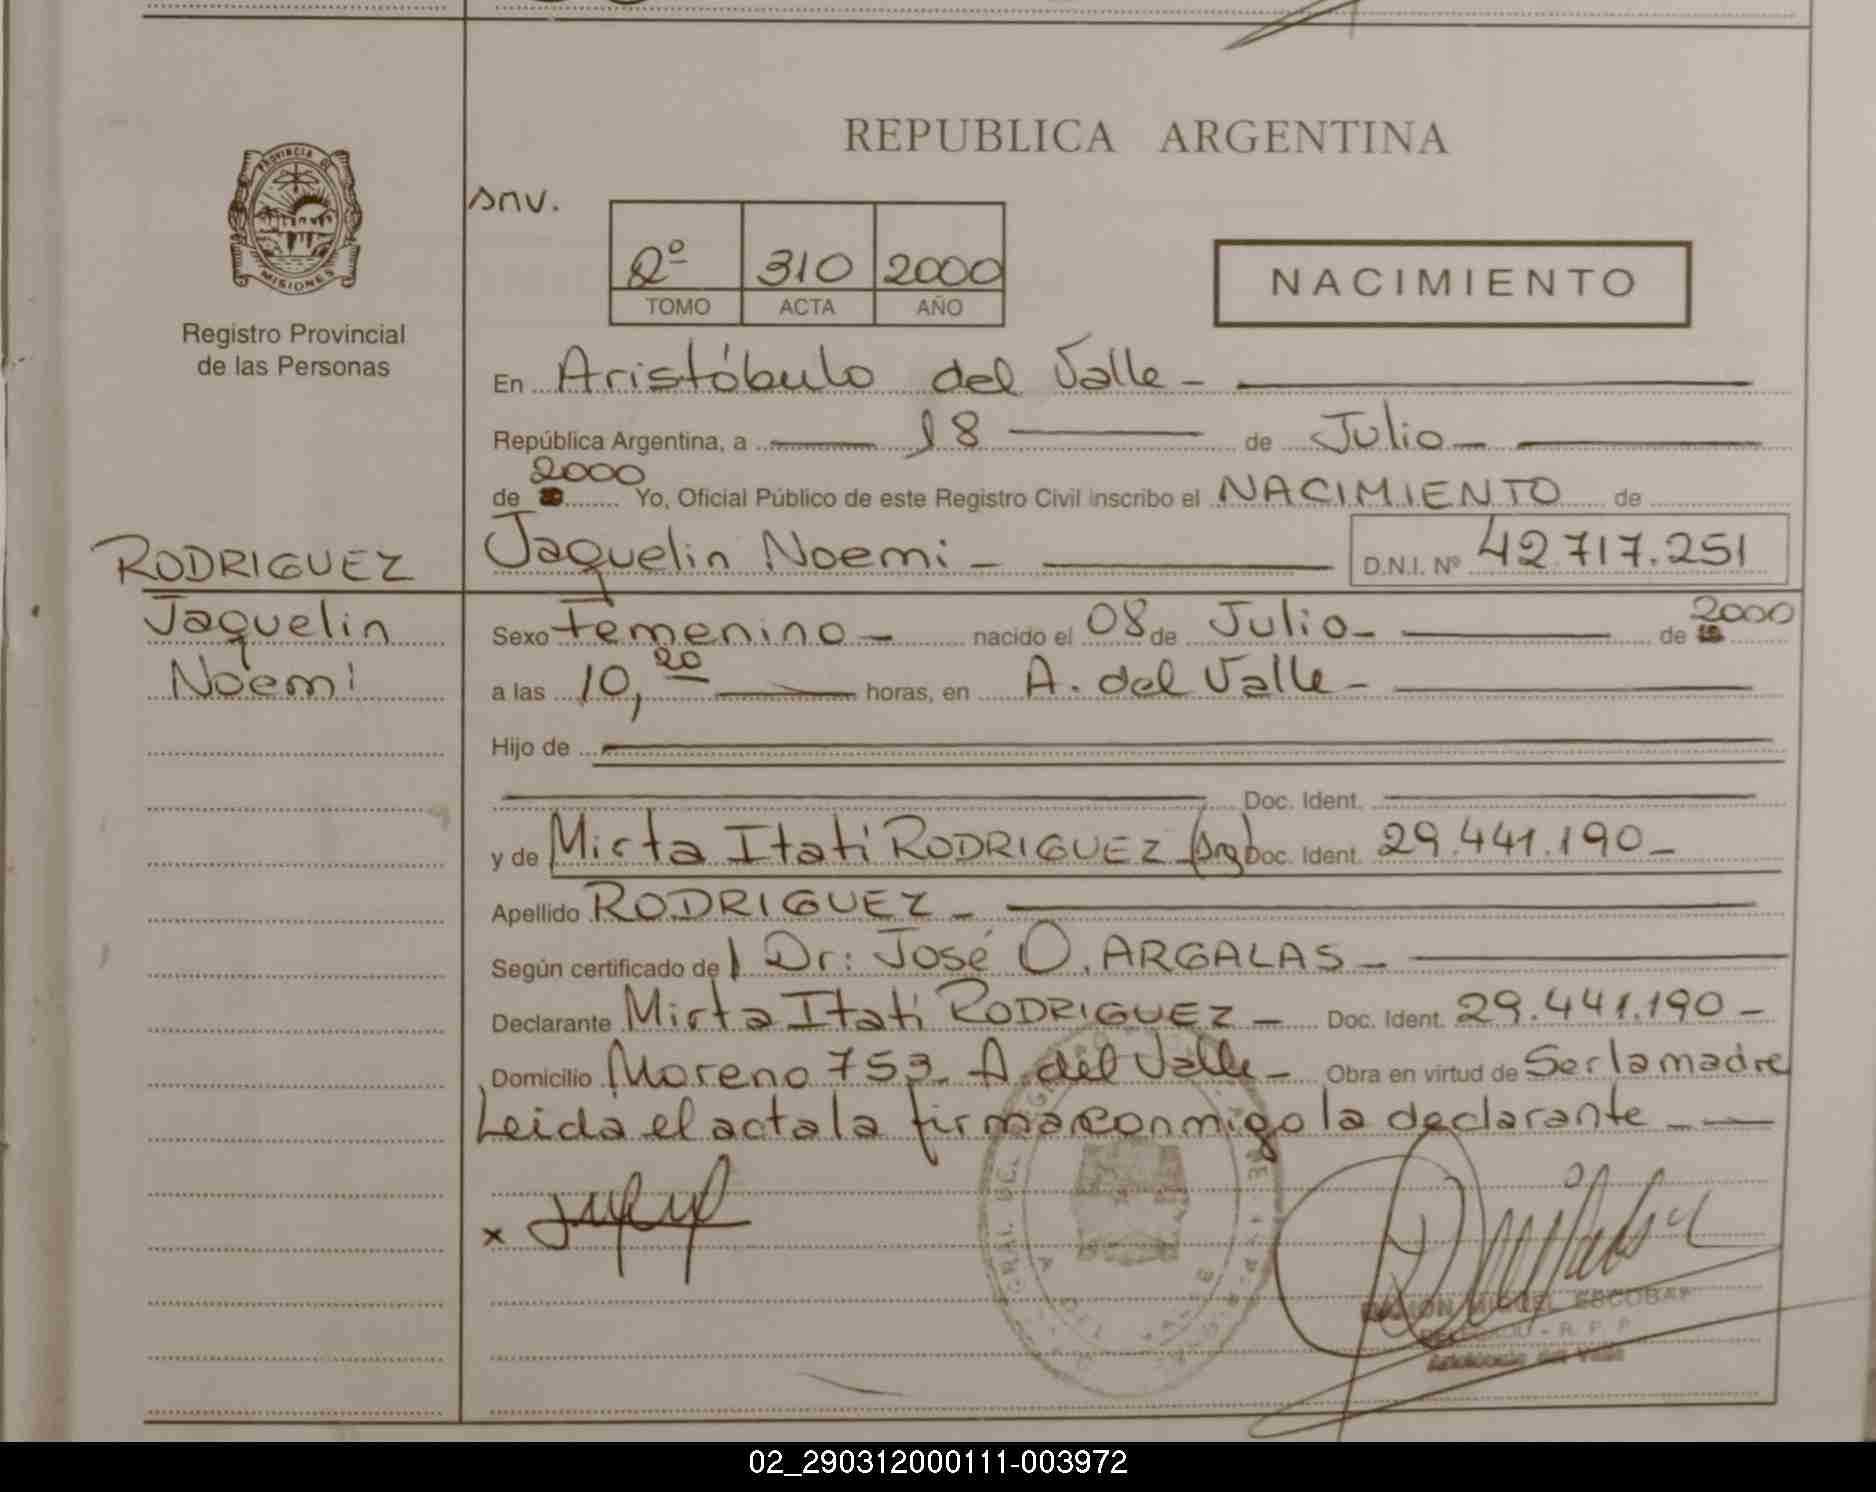 REPUBLICA ARGENTINA
PROVINCIA DE
MISIONES
Registro Provincial
de las Personas
snv.
2º 310 2000
TOMO ACTA AÑO
NACIMIENTO
En Aristóbulo del Valle -
República Argentina, a 18 de Julio -
2000
de Yo, Oficial Público de este Registro Civil inscribo el NACIMIENTO de
RODRIGUEZ
Jaquelin
Noemi
Jaquelin Noemi - D.N.I. Nº 42.717.251
Sexo Femenino - nacido el 08 de Julio - de 2000
a las 10,20 horas, en A. del Valle -
Hijo de
Doc. Ident.
y de Mirta Itati RODRIGUEZ - (Arg) Doc. Ident. 29.441.190 -
Apellido RODRIGUEZ -
Según certificado del Dr: José O. ARGALAS -
Declarante Mirta Itati RODRIGUEZ - Doc. Ident. 29.441.190 -
Domicilio Moreno 753 - A del Valle - Obra en virtud de Ser la madre
Leida el acta la firma conmigo la declarante -
x
RAMON MIGUEL ESCOBAR
DELEGADO - R. P. P.
Aristóbulo del Valle
02_290312000111-003972